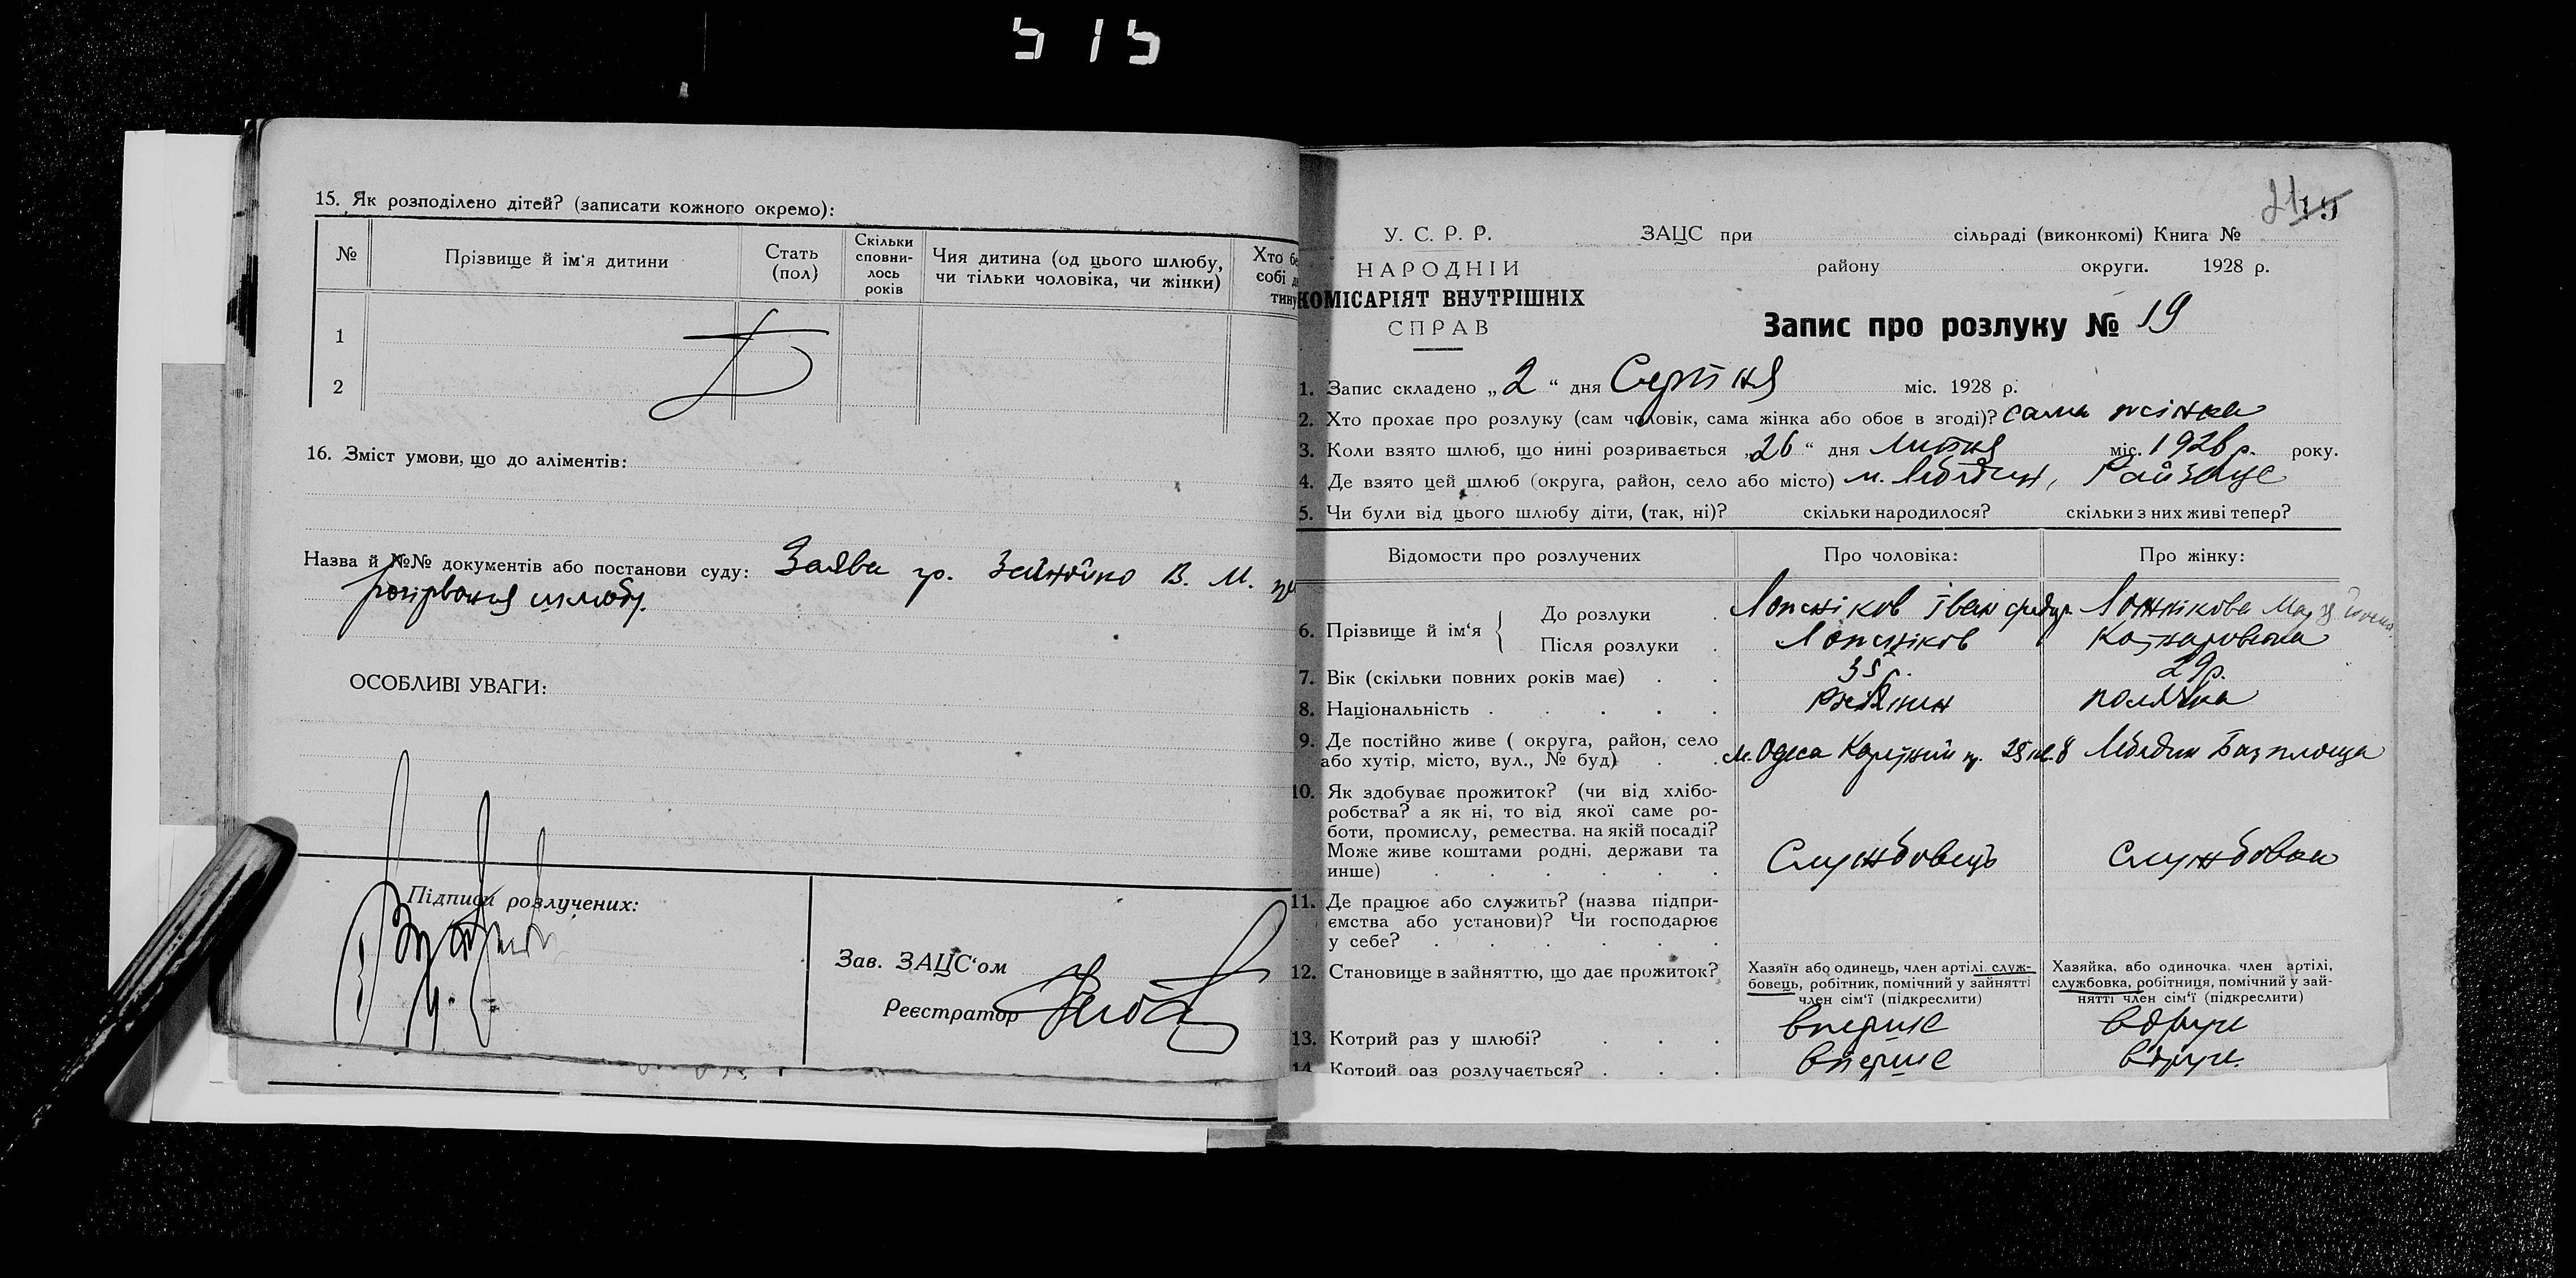 515
15. Як розподілено дітей? (записати кожного окремо):
№
Прізвище й ім'я дитини
Стать (пол)
Скільки сповни-лось років
Чия дитина (од цього шлюбу, чи тільки чоловіка, чи жінки)
Хто бе
собі д
тину
1
2
16. Зміст умови, що до аліментів:
Назва й №№ документів або постанови суду: Заява гр. В. М.
розірвання шлюбу.
ОСОБЛИВІ УВАГИ:
Підписи розлучених:
Зав. ЗАЦС'ом
Реєстратор
21 15
У. С. Р. Р.
НАРОДНІЙ
КОМІСАРІЯТ ВНУТРІШНІХ
СПРАВ
ЗАЦС при сільраді (виконкомі) Книга №
району округи. 1928 р.
Запис про розлуку № 19
1. Запис складено „2“ дня Серпня міс. 1928 р.
2. Хто прохає про розлуку (сам чоловік, сама жінка або обоє в згоді)? сама жінка
3. Коли взято шлюб, що нині розривається „26“ дня Липня міс. 1926 р. року.
4. Де взято цей шлюб (округа, район, село або місто) м. Лебедин, Райзацс
5. Чи були від цього шлюбу діти, (так, ні)? скільки народилося? скільки з них живі тепер?
Відомости про розлучених
Про чоловіка:
Про жінку:
6. Прізвище й ім'я
До розлуки . Ложніков Іван Ложнікова
Після розлуки . Ложніков
7. Вік (скільки повних років має) . . 35 р. 29 р.
8. Національність . . . . . росіянин полячка
9. Де постійно живе ( округа, район, село
або хутір, місто, вул., № буд) . . м. Одеса Лебедин Баз площа
10. Як здобуває прожиток? (чи від хлібо-
робства? а як ні, то від якої саме ро-
боти, промислу, ремества. на якій посаді?
Може живе коштами родні, держави та
инше) . . . . . . Службовець Службовка
11. Де працює або служить? (назва підпри-
ємства або установи)? Чи господарює
у себе? . . . . . .
12. Становище в зайняттю, що дає прожиток?
Хазяїн або одинець, член артілі, служ-
бовець, робітник, помічний у зайнятті
член сім'ї (підкреслити)
Хазяйка, або одиночка. член артілі,
службовка, робітниця, помічний у зай-
нятті член сім'ї (підкреслити)
13. Котрий раз у шлюбі? . . . вперше вдруге
14. Котрий раз розлучається? . . . вперше вдруге.